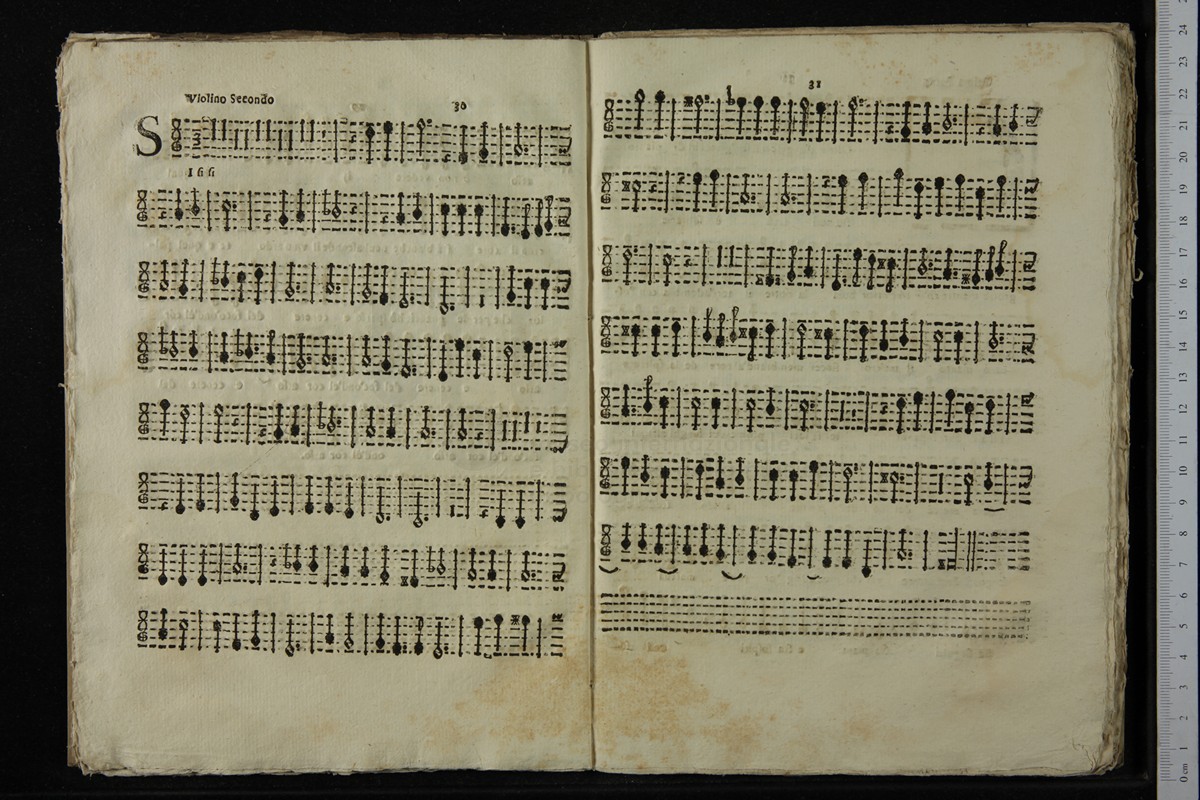 Violino Secondo 30
S
I ſi ſi
31
24
23
22
21
20
19
18
17
16
15
14
13
12
11
10
9
8
7
6
5
4
3
2
1
0 cm